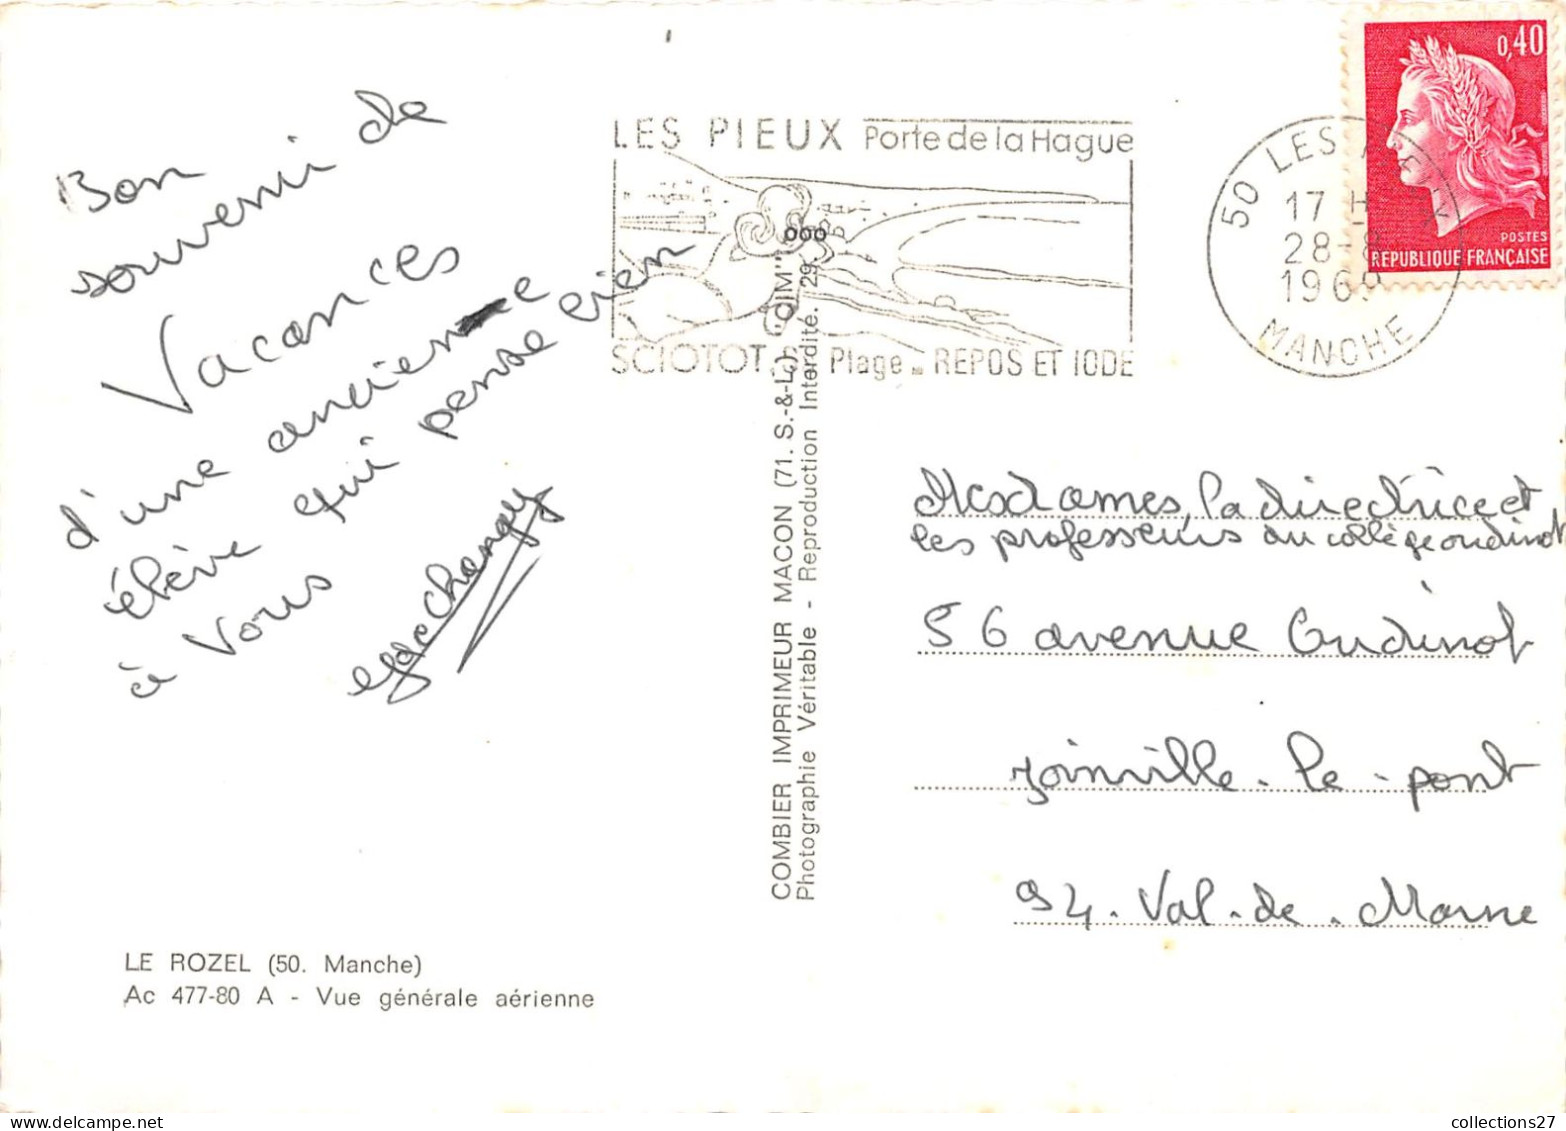 Bon
souvenir de
Vacances
d'une ancienne
élève qui pense bien
à Vous
LES PIEUX Porte de la Hague
SCIOTOT. Plage. REPOS ET IODE
50 LES PIEUX
17 H
28-8
1969
MANCHE
0,40
POSTES
REPUBLIQUE FRANÇAISE
COMBIER IMPRIMEUR MACON (71. S.-&-L.) "CIM"
Photographie Véritable - Reproduction Interdite. 29.
Mesdames, la directrice et
les professeurs du collège oudinot
56 avenue Oudinot
Joinville-le-pont
94. Val-de-Marne
LE ROZEL (50. Manche)
Ac 477-80 A - Vue générale aérienne
collections27